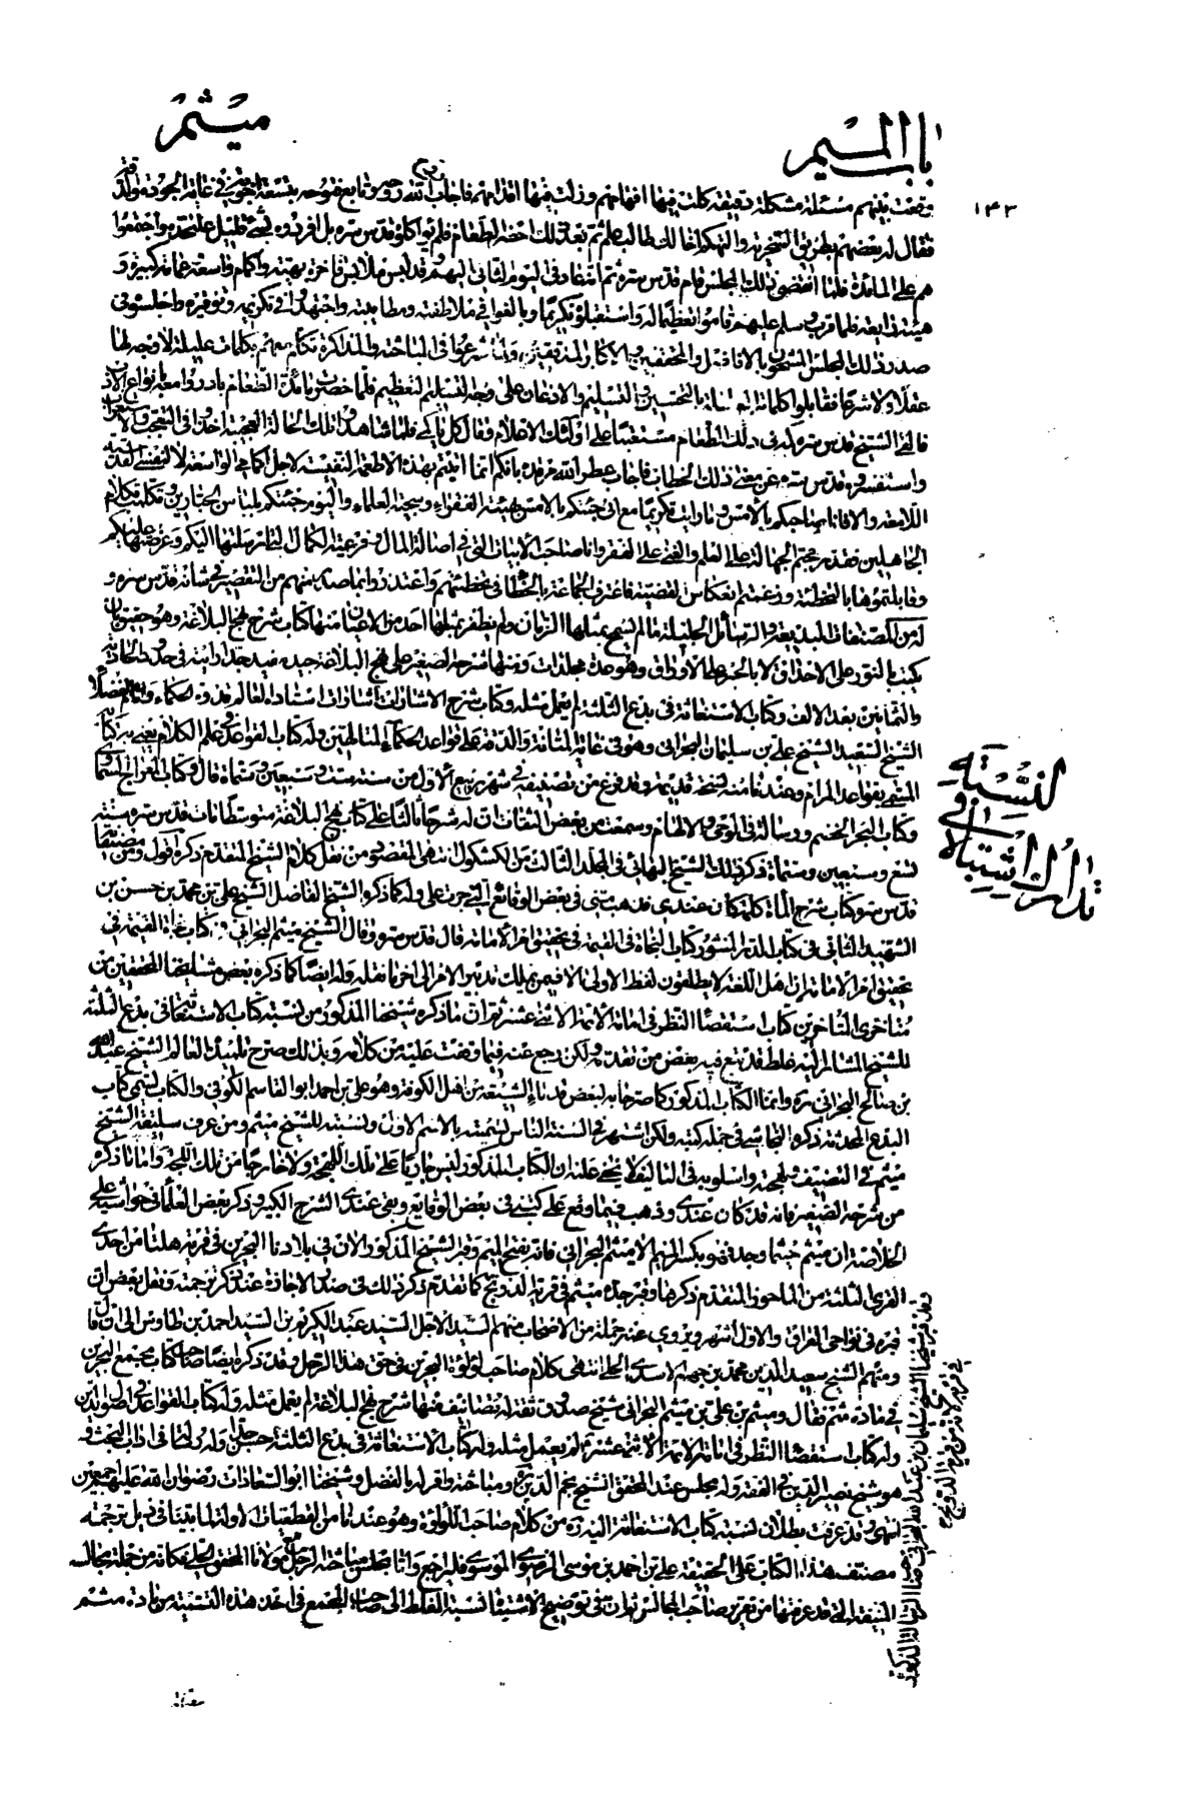 باب الميم
ميثم
١٤٣
وقعت بينهم مسئلة مشكلة دقيقة كلت فيها افهامهم وزلت فيها اقدامهم فاجاب روح الله روحه وتابع فتوحه بتسعة اجوبة في غاية الجودة والدقة
فقال له بعضهم بطريق السخرية والتهكم اخالك طالب علم ثم بعد ذلك احضر الطعام فلم يواكلوه قدس سره بل افردوه بشئ قليل على حدة واجتمعوا
هم على المائدة فلما انقضى ذلك المجلس قام قدس سره ثم انه عاد في اليوم الثاني اليهم وقد لبس ملابس فاخرة بهية واكمام واسعة عمامة كبيرة و
هيئة رايعة فلما قرب وسلم عليهم قاموا تعظيما له واستقبلوه تكريما وبالغوا في ملاطفته ومطايبته واجتهدوا في تكريمه وتوقيره واجلسوه في
صدر ذلك المجلس المشحون بالافاضل والمحققين والاكابر المدققين ولما شرعوا في المباحثة والمذاكرة تكلم معهم بكلمات عليلة لا وجه لها
عقلا ولا شرعا فقابلوا كلماته بالتحسين والتسليم والاذعان على وجه التعظيم فلما حضرت مائدة الطعام بادروا معه بانواع الادب
فالقى الشيخ قدس سره كمه في ذلك الطعام مستعتبا على اولئك الاعلام وقال كل يا كمي فلما شاهدوا تلك الحالة العجيبة اخذوا في التعجب والاستغراب
واستفسروه قدس سره عن معنى ذلك الخطاب فاجاب عطر الله مرقده بانكم انما اتيتم بهذه الاطعمة النفيسة لاجل اكمامي الواسعة لا لنفسي القدسية
اللامعة والا فانا صاحبكم بالامس وما رايت تكريما مع اني جئتكم بالامس بهيئة الفقراء وسجية العلماء واليوم جئتكم بلباس الجبارين وتكلمت بكلام
الجاهلين فقد رجحتم الجهالة على العلم والغنى على الفقر وانا صاحب الابيات التي في اصالة المال وفرعية الكمال التي ارسلتها اليكم وعرضتها عليكم
وقابلتموها بالتخطئة وزعمتم انعكاس القضية فاعترف الجماعة بالخطا في تخطئتهم واعتذروا بما صدر منهم من التقصير في شانه قدس سره و
له من المصنفات البديعة والرسائل الجليلة ما لم يسمح بمثلها الزمان ولم يظفر بمثلها احد من الاعيان منها كتاب شرح نهج البلاغة وهو حقيق بان
يكتب بالنور على الاحداق لا بالحبر على الاوراق وهو عدة مجلدات ومنها شرحه الصغير على نهج البلاغة جيد مفيد جدا رايته في حدود الحادية
والثمانين بعد الالف وكتاب الاستغاثة في بدع الثلثة لم يعمل مثله وكتاب شرح الاشارات اشارات استاده العالم قدوة الحكماء وامام الفضلاء
الشيخ السعيد الشيخ علي بن سليمان البحراني وهو في غاية المتانة والدقة على قواعد الحكماء المتالهين وله كتاب القواعد في علم الكلام يعني به كتابه
المسمى بقواعد المرام وعندنا منه نسخة قديمة وقد فرغ من تصنيفه في شهر ربيع الاول من سنة ست وسبعين وستمائة قال وكتاب المعراج السماوي
وكتاب البحر الخضم ورسالة في الوحي والالهام وسمعت من بعض الثقات ان له شرحا ثالثا على كتاب نهج البلاغة متوسطا مات قدس سره سنة
تسع وسبعين وستمائة ذكر ذلك الشيخ البهائي في المجلد الثالث من الكشكول انتهى المقصود من نقل كلام الشيخ المتقدم ذكره اقول ومن مصنفاته
قدس سره كتاب شرح المائة كلمة كان عندي فذهب مني في بعض الوقائع التي جرت علي وله كما ذكره الشيخ الفاضل الشيخ علي بن محمد بن حسن بن
الشهيد الثاني في كتاب الدر المنثور كتاب النجاة في القيمة في تحقيق امر الامامة قال قدس سره وقال الشيخ ميثم البحراني في كتاب نجاة القيمة في
تحقيق امر الامامة ان اهل اللغة لا يطلقون لفظ الاولى الا فيمن يملك تدبير الامر الى اخر ما نقله وله ايضا كما ذكره بعض مشايخنا المحققين من
متاخري المتاخرين كتاب استقصاء النظر في امامة الائمة الاثني عشر ثم ان ما ذكره شيخنا المذكور من نسبة كتاب الاستغاثة في بدع الثلثة
للشيخ المشار اليه غلط قد تبع فيه بعض من تقدمه ولكن رجع عنه فيما وقفت عليه من كلامه وبذلك صرح تلميذه العالم الشيخ عبد الله
بن صالح البحراني ره وانما الكتاب المذكور كما صرحا به لبعض قدماء الشيعة من اهل الكوفة وهو علي بن احمد ابو القاسم الكوفي والكتاب يسمى كتاب
البدع المحدثة ذكره النجاشي في جملة كتبه ولكن اشتهر في السنة الناس تسميته بالاسم الاول ونسبته للشيخ ميثم ومن عرف سليقة الشيخ
ميثم في التصنيف ولهجته واسلوبه في التاليف لا يخفى عليه ان الكتاب المذكور ليس جاريا على تلك اللهجة ولا خارجا من تلك اللجة واما ما ذكره
من شرحه الصغير فانه قد كان عندي وذهب فيما وقع على كتبي في بعض الوقايع وبقي عندي الشرح الكبير وذكر بعض العلماء في حواشيه على
الخلاصة ان ميثم حيثما وجد فهو بكسر الميم الا ميثم البحراني فانه بفتح الميم وقبر الشيخ المذكور الان في بلادنا البحرين في قرية هلتا من احدى
القرى الثلثة من الماحوز المتقدم ذكرها وقبر جده ميثم في قرية الدونج كما تقدم ذكر ذلك في صدر الاجازة عند ذكر ترجمته ونقل بعض ان
قبره في نواحي العراق والاول اشهر ويروي عنه جملة من الاصحاب منهم السيد الاجل السيد عبد الكريم بن السيد احمد بن طاوس الى ان قال
ومنهم الشيخ سعيد الدين محمد بن جهم الاسدي الحلي انتهى كلام صاحب لؤلؤة البحرين في حق هذا الرجل وقد ذكره ايضا صاحب كتاب مجمع البحرين
في مادة مثم فقال وميثم بن علي بن ميثم البحراني شيخ صدوق ثقة له تصانيف منها شرح نهج البلاغة لم يعمل مثله وله كتاب القواعد في اصول الدين
وله كتاب استقصاء النظر في امامة الائمة الاثني عشر لم يعمل مثله وله كتاب الاستغاثة في بدع الثلثة حسن جدا وله رسالة في اداب البحث و
هو شيخ نصير الدين في الفقه وله مجلس عند المحقق الشيخ نجم الدين ره ومباحثة واقر له بالفضل وشيخنا ابو السعادات رضوان الله عليهم اجمعين
انتهى وقد عرفت بطلان نسبة كتاب الاستغاثة اليه ره من كلام صاحب اللؤلؤة وهو عندنا من القطعيات الاولية لما بينا في ذيل ترجمة
مصنف هذا الكتاب على الحقيقة علي بن احمد بن موسى الرضوي الموسوي فليراجع واما اصل مباحثة الرجل مع مولانا المحقق الحلي فكانه من جملة مجالسه
المنيفة التي قد عرفتها من تقرير صاحب المجالس ثم ان في توضيح الاشتباه نسبة الغلط الى صاحب المجمع في اخذ هذه التسمية من مادة مثم
لنسبته
في
تدارك اشتباه